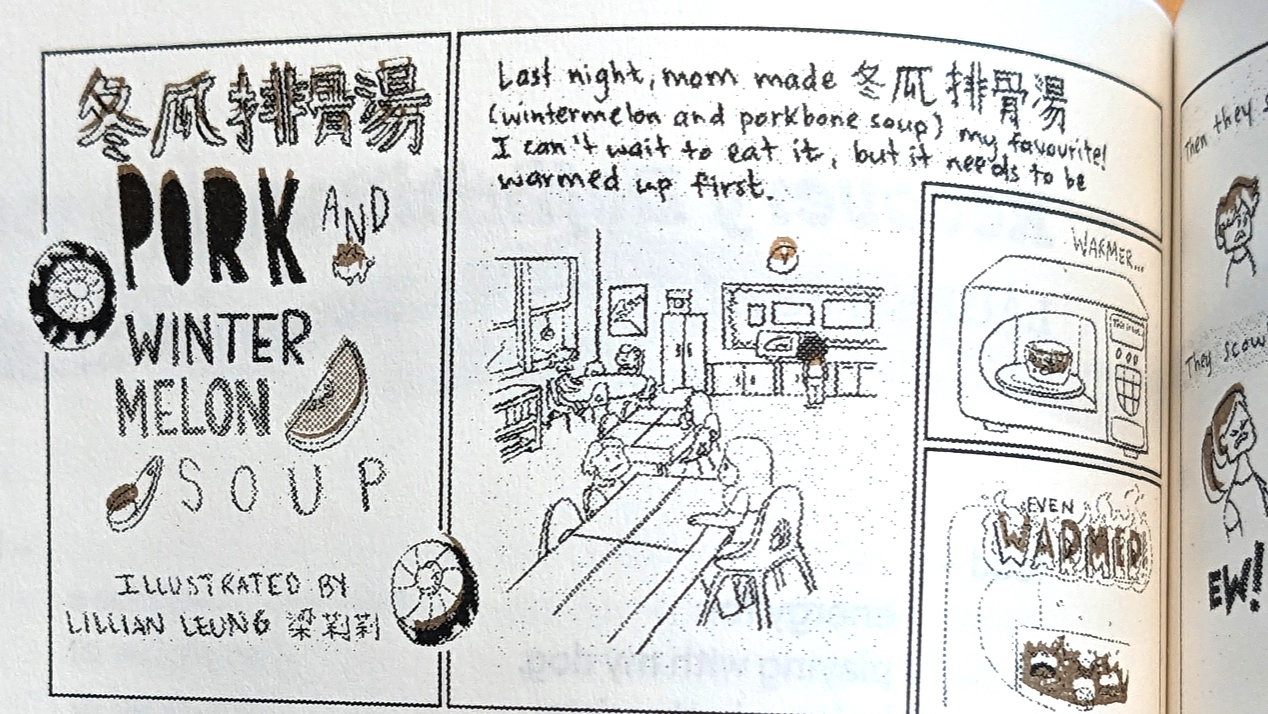 冬瓜排骨湯
PORK AND
WINTER
MELON
SOUP
ILLUSTRATED BY
LILLIAN LEUNG 梁莉莉
Last night, mom made 冬瓜排骨湯
(wintermelon and porkbone soup) my favourite!
I can't wait to eat it, but it needs to be
warmed up first.
WARMER...
EVEN
WARMER
Then they
They scow
EW!